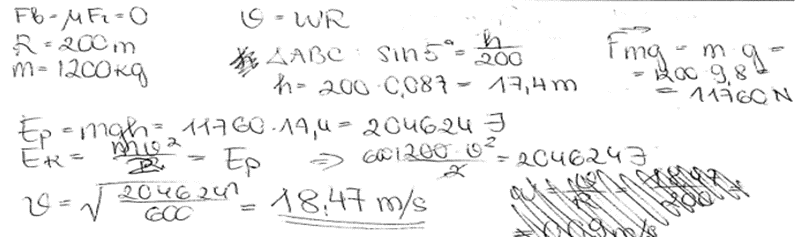 Fb = μFr = 0
R = 200m
m = 1200kg
v = ωR
△ABC : sin5° = h/200
h = 200 · 0,087 = 17,4m
Fmg = m · g =
= 1200 · 9,8 =
= 11760N
Ep = mgh = 11760 · 17,4 = 204624 J
Ek = mv²/2 = Ep ⇒ 1200 · v²/2 = 204624J
v = √204624/600 = 18,47 m/s